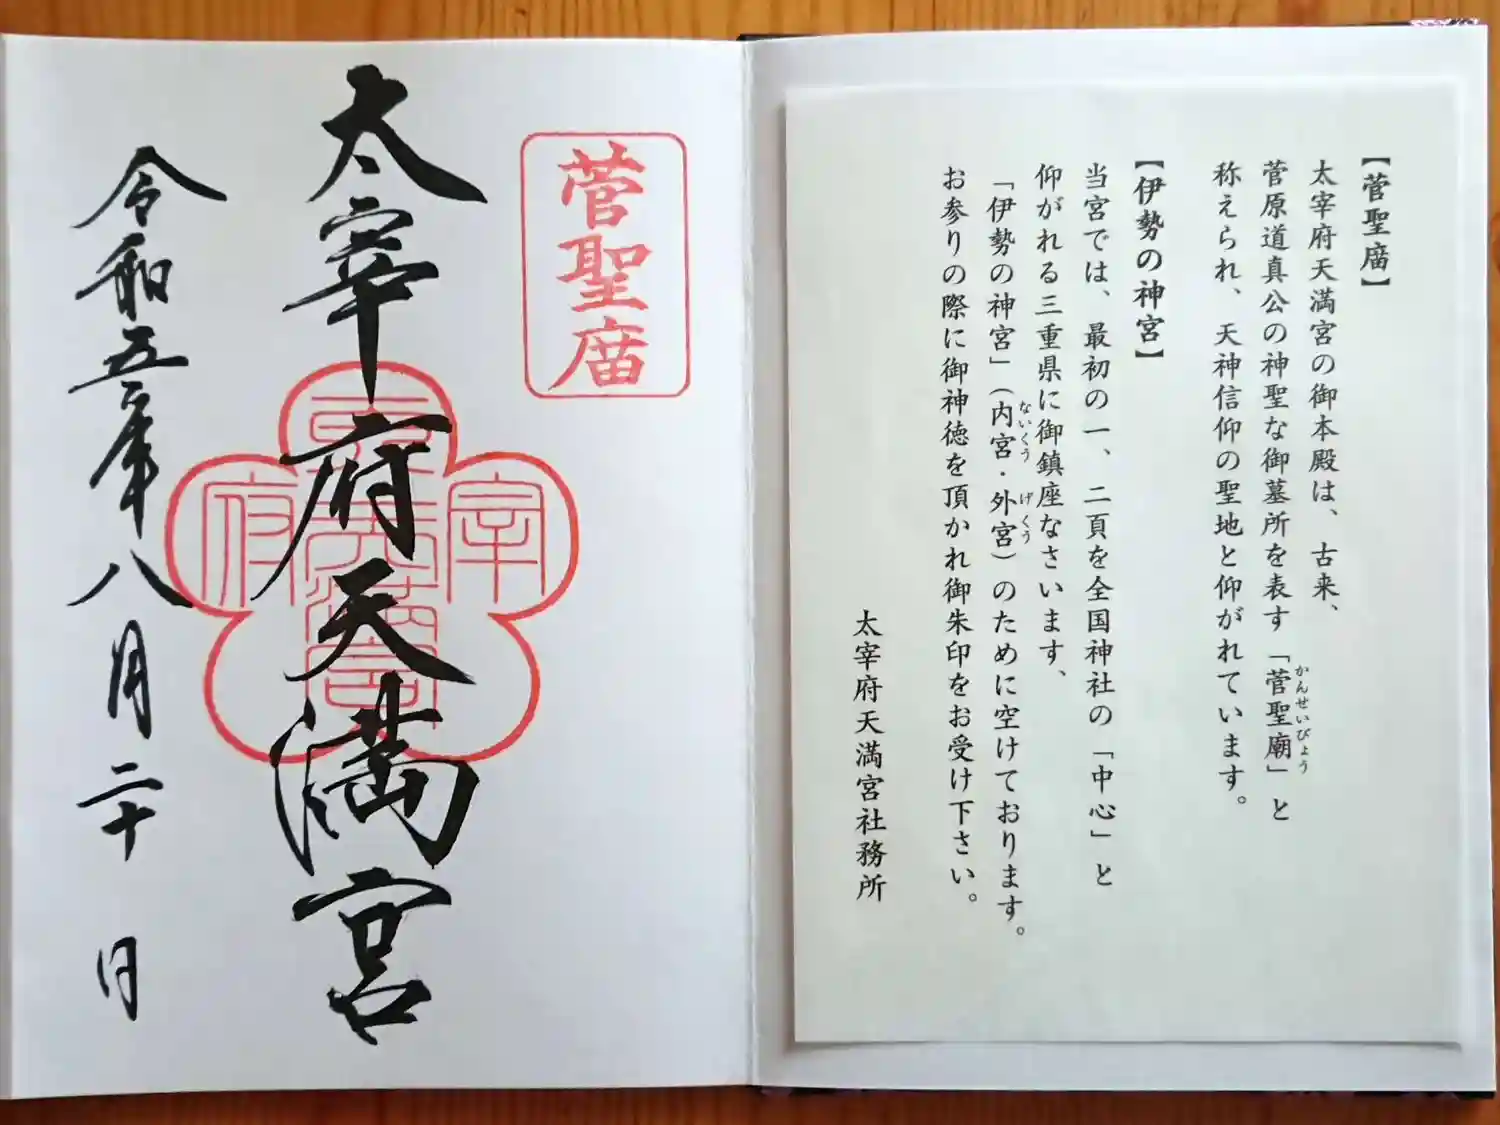 【菅聖庿】
太宰府天満宮の御本殿は、古来、
菅原道真公の神聖な御墓所を表す「菅聖廟」と
かんせいびょう
称えられ、天神信仰の聖地と仰がれています。
【伊勢の神宮】
当宮では、最初の一、二頁を全国神社の「中心」と
仰がれる三重県に御鎮座なさいます、
「伊勢の神宮」（内宮・外宮）のために空けております。
ないくう げくう
お参りの際に御神徳を頂かれ御朱印をお受け下さい。
太宰府天満宮社務所
菅聖庿
太宰府天満宮
宰
府
令和五年八月二十日